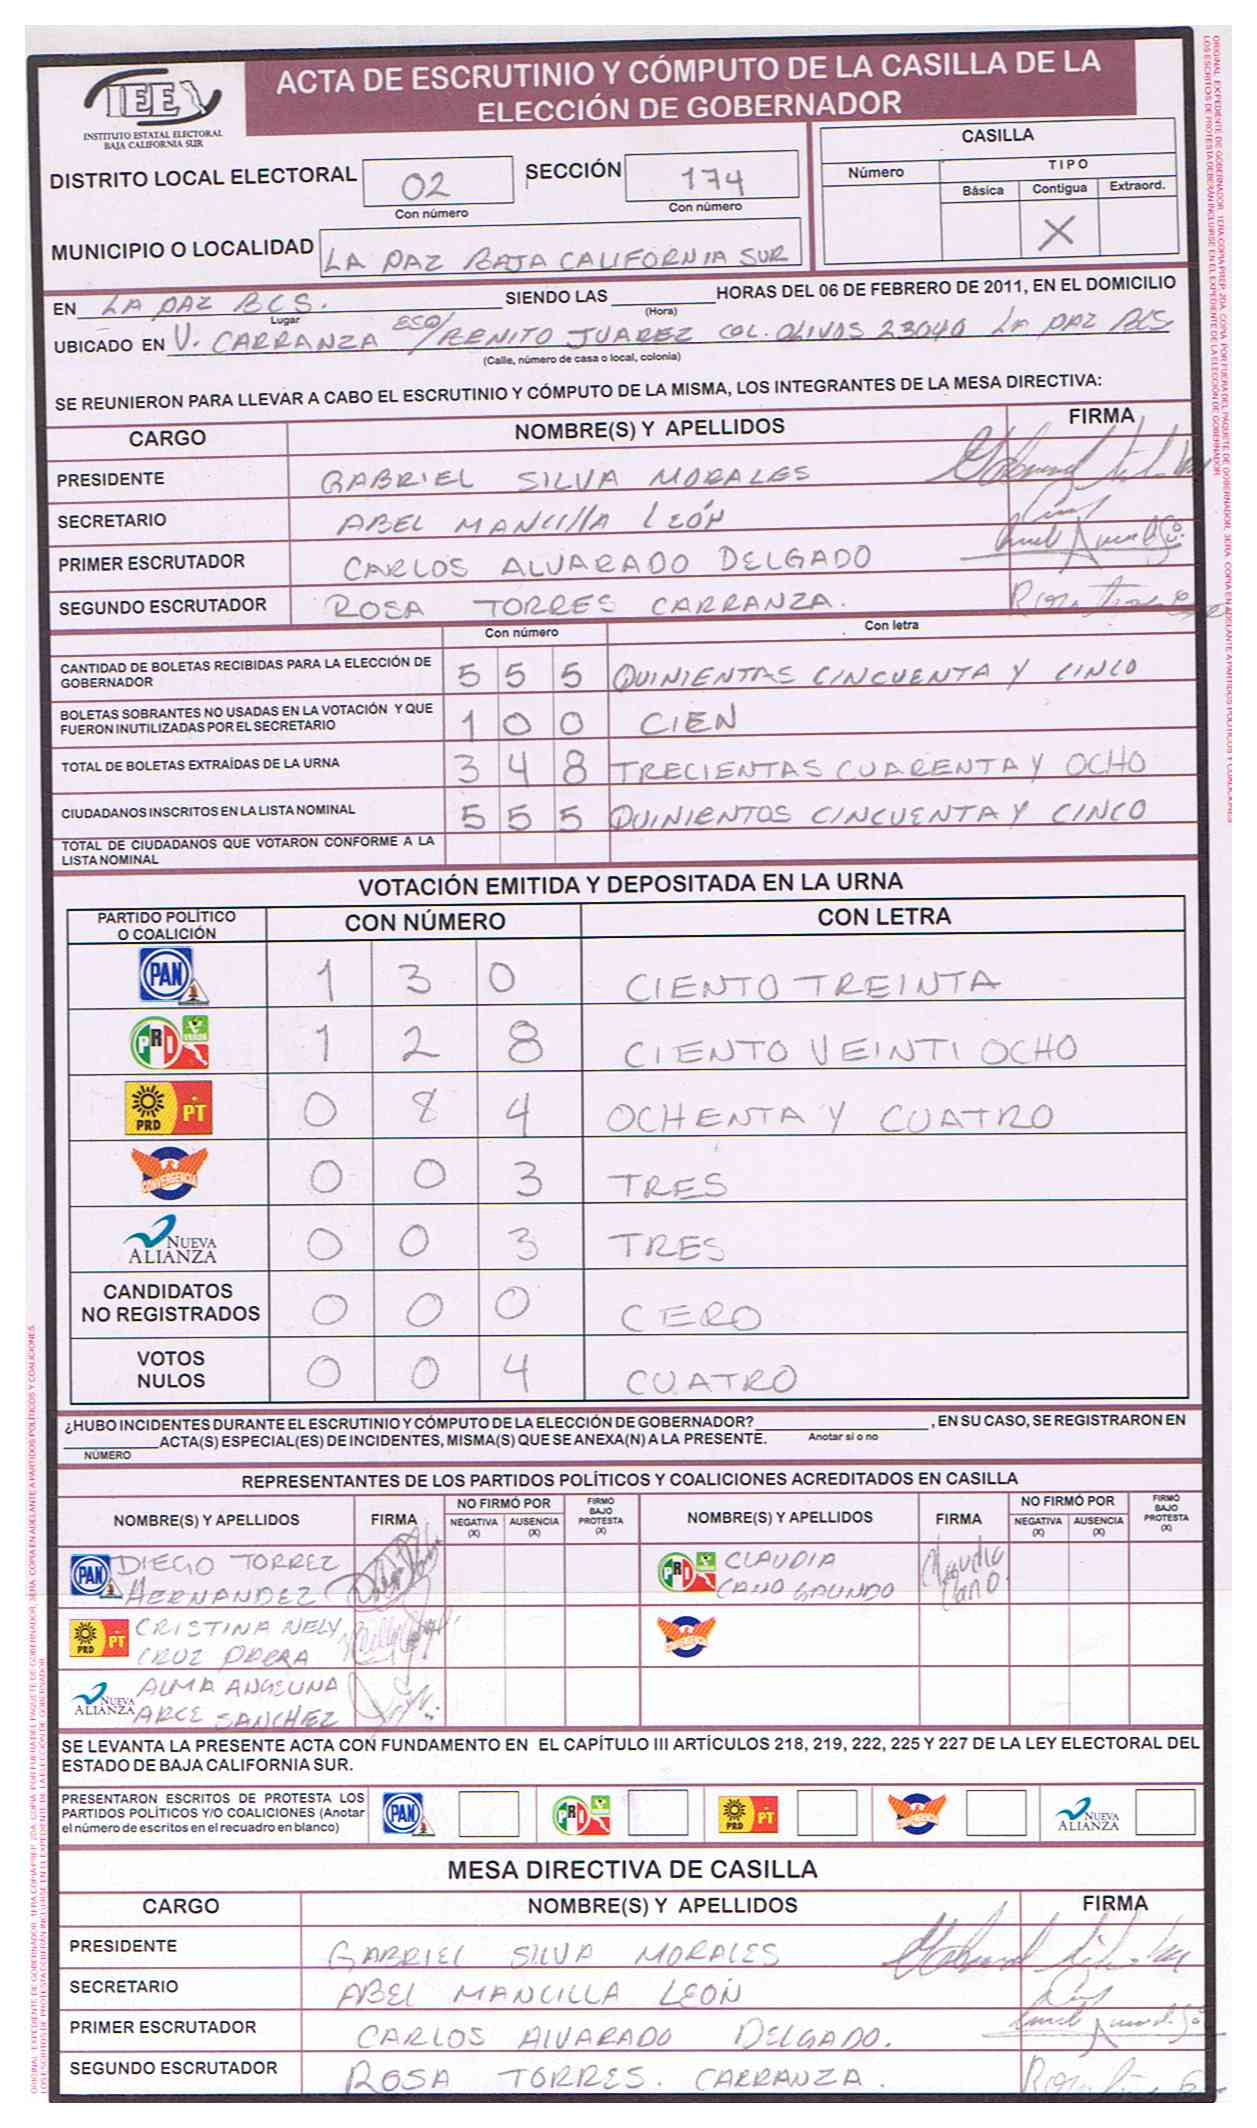 ACTA DE ESCRUTINIO Y CÓMPUTO DE LA CASILLA DE LA
ELECCIÓN DE GOBERNADOR
IEE
INSTITUTO ESTATAL ELECTORAL
BAJA CALIFORNIA SUR
DISTRITO LOCAL ELECTORAL 02 SECCIÓN 174
Con número Con número
CASILLA
Número TIPO
Básica Contigua Extraord.
X
MUNICIPIO O LOCALIDAD LA PAZ BAJA CALIFORNIA SUR
EN LA PAZ BCS. SIENDO LAS HORAS DEL 06 DE FEBRERO DE 2011, EN EL DOMICILIO
Lugar (Hora)
UBICADO EN V. CARRANZA ESQ/ BENITO JUAREZ COL. OLIVOS 23040 LA PAZ BCS
(Calle, número de casa o local, colonia)
SE REUNIERON PARA LLEVAR A CABO EL ESCRUTINIO Y CÓMPUTO DE LA MISMA, LOS INTEGRANTES DE LA MESA DIRECTIVA:
CARGO NOMBRE(S) Y APELLIDOS FIRMA
PRESIDENTE GABRIEL SILVA MORALES
SECRETARIO ABEL MANCILLA LEÓN
PRIMER ESCRUTADOR CARLOS ALVARADO DELGADO
SEGUNDO ESCRUTADOR ROSA TORRES CARRANZA.
Con número Con letra
CANTIDAD DE BOLETAS RECIBIDAS PARA LA ELECCIÓN DE
GOBERNADOR 5 5 5 QUINIENTAS CINCUENTA Y CINCO
BOLETAS SOBRANTES NO USADAS EN LA VOTACIÓN Y QUE
FUERON INUTILIZADAS POR EL SECRETARIO 1 0 0 CIEN
TOTAL DE BOLETAS EXTRAÍDAS DE LA URNA 3 4 8 TRECIENTAS CUARENTA Y OCHO
CIUDADANOS INSCRITOS EN LA LISTA NOMINAL 5 5 5 QUINIENTOS CINCUENTA Y CINCO
TOTAL DE CIUDADANOS QUE VOTARON CONFORME A LA
LISTA NOMINAL
VOTACIÓN EMITIDA Y DEPOSITADA EN LA URNA
PARTIDO POLÍTICO
O COALICIÓN CON NÚMERO CON LETRA
PAN 1 3 0 CIENTO TREINTA
PRI VERDE 1 2 8 CIENTO VEINTI OCHO
PRD PT 0 8 4 OCHENTA Y CUATRO
CONVERGENCIA 0 0 3 TRES
NUEVA ALIANZA 0 0 3 TRES
CANDIDATOS
NO REGISTRADOS 0 0 0 CERO
VOTOS
NULOS 0 0 4 CUATRO
¿HUBO INCIDENTES DURANTE EL ESCRUTINIO Y CÓMPUTO DE LA ELECCIÓN DE GOBERNADOR? , EN SU CASO, SE REGISTRARON EN
Anotar si o no
ACTA(S) ESPECIAL(ES) DE INCIDENTES, MISMA(S) QUE SE ANEXA(N) A LA PRESENTE.
NÚMERO
REPRESENTANTES DE LOS PARTIDOS POLÍTICOS Y COALICIONES ACREDITADOS EN CASILLA
NOMBRE(S) Y APELLIDOS FIRMA NO FIRMÓ POR NEGATIVA (X) AUSENCIA (X) FIRMÓ BAJO PROTESTA (X) NOMBRE(S) Y APELLIDOS FIRMA NO FIRMÓ POR NEGATIVA (X) AUSENCIA (X) FIRMÓ BAJO PROTESTA (X)
PAN DIEGO TORREZ HERNANDEZ
PRI CLAUDIA CANO GALINDO Claudia Cano.
PRD PT CRISTINA NELY CRUZ
CONVERGENCIA
NUEVA ALIANZA ALMA ANGELINA ARCE SANCHEZ
SE LEVANTA LA PRESENTE ACTA CON FUNDAMENTO EN EL CAPÍTULO III ARTÍCULOS 218, 219, 222, 225 Y 227 DE LA LEY ELECTORAL DEL
ESTADO DE BAJA CALIFORNIA SUR.
PRESENTARON ESCRITOS DE PROTESTA LOS
PARTIDOS POLÍTICOS Y/O COALICIONES (Anotar
el número de escritos en el recuadro en blanco)
PAN PRI PRD PT CONVERGENCIA NUEVA ALIANZA
MESA DIRECTIVA DE CASILLA
CARGO NOMBRE(S) Y APELLIDOS FIRMA
PRESIDENTE GABRIEL SILVA MORALES
SECRETARIO ABEL MANCILLA LEÓN
PRIMER ESCRUTADOR CARLOS ALVARADO DELGADO.
SEGUNDO ESCRUTADOR ROSA TORRES. CARRANZA.
ORIGINAL: EXPEDIENTE DE GOBERNADOR, 1ERA COPIA PREP, 2DA. COPIA POR FUERA DEL PAQUETE DE GOBERNADOR, 3ERA. COPIA EN ADELANTE A PARTIDOS POLÍTICOS Y COALICIONES.
LOS ESCRITOS DE PROTESTA DEBERÁN INCLUIRSE EN EL EXPEDIENTE DE LA ELECCIÓN DE GOBERNADOR